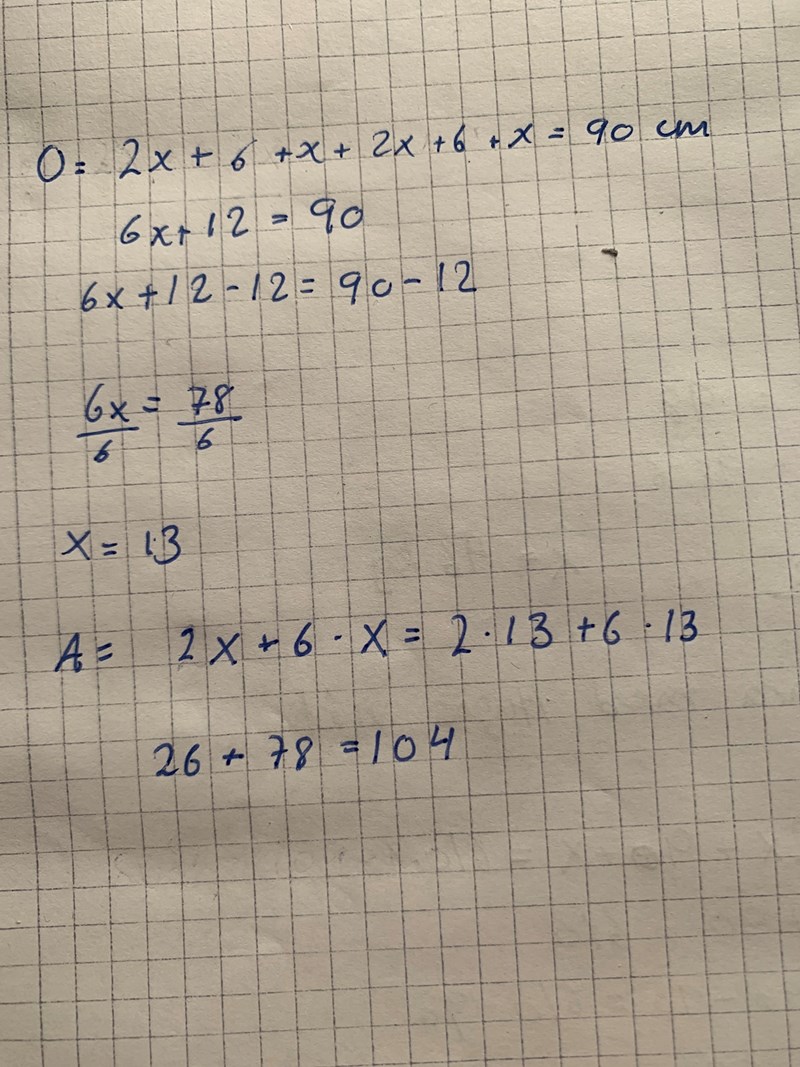 O= 2x + 6 + x + 2x + 6 + x = 90 cm
6x + 12 = 90
6x + 12 - 12 = 90 - 12
6x = 78
6 6
x = 13
A = 2x + 6 · x = 2 · 13 + 6 · 13
26 + 78 = 104